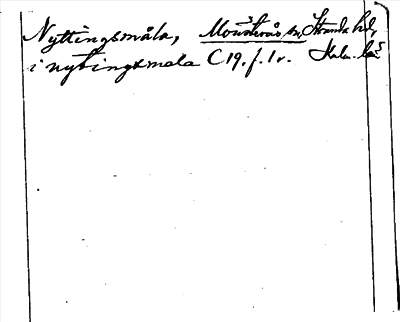 Nyttingsmåla, Mönsterås sn, Stranda hd,
i nytingxmala C 19. f. 1 v. Kalm. län